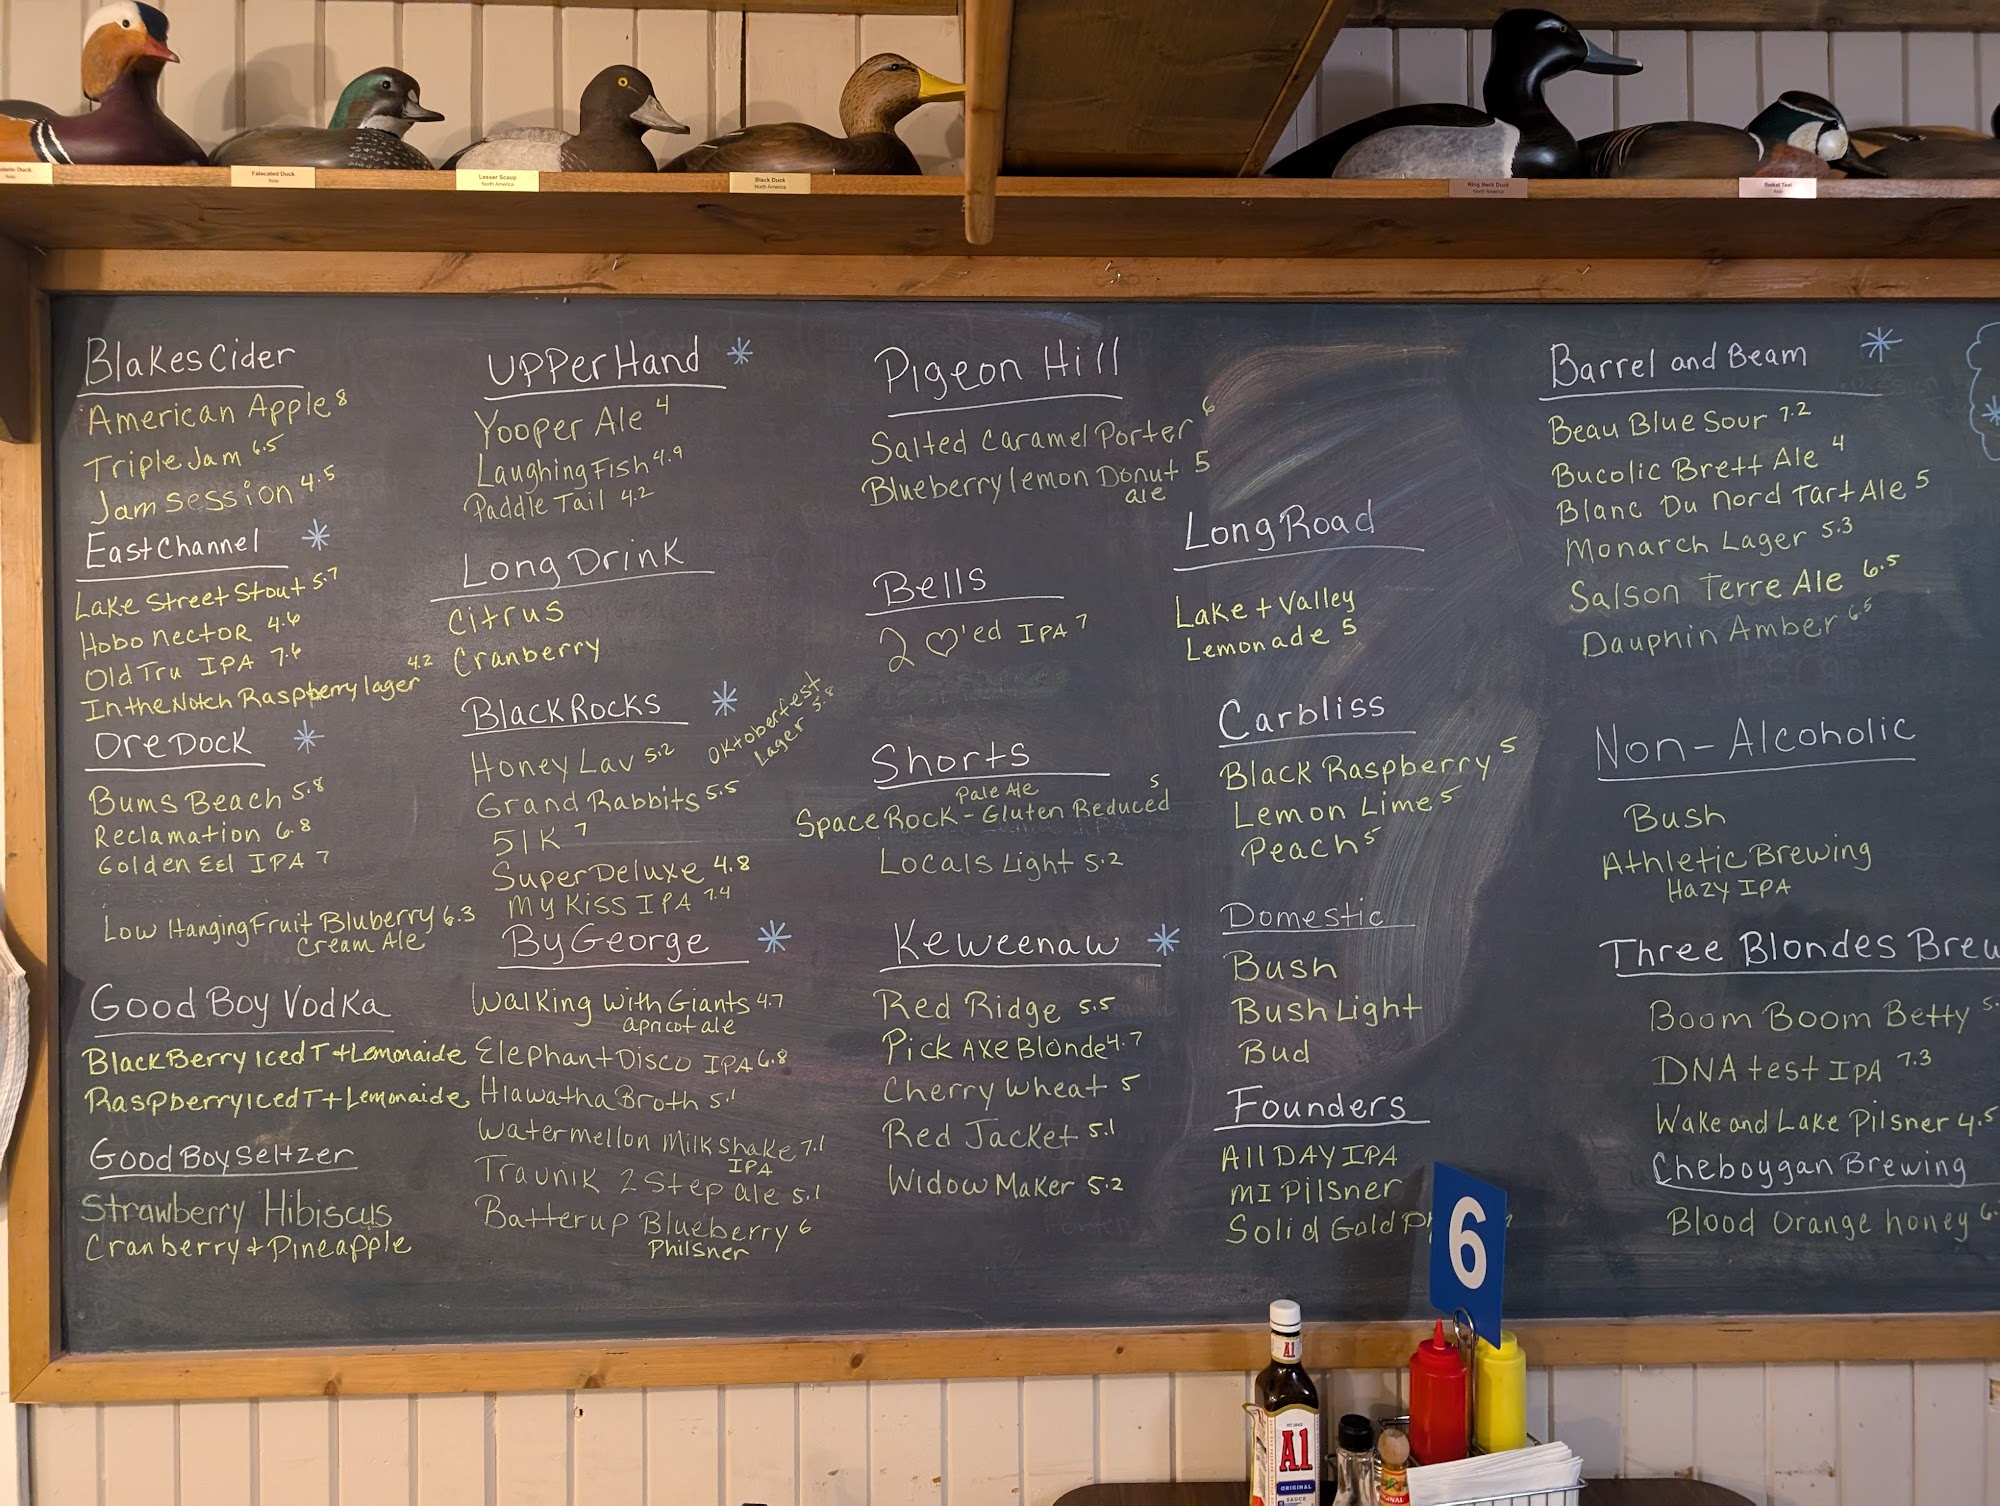 Asia
Falacated Duck
Asia
Lesser Scaup
North America
Black Duck
North America
Ring Neck Duck
North America
Baikal Teal
Asia
Blakes Cider
American Apple 8
Triple Jam 6.5
Jam Session 4.5
East Channel
Lake Street Stout 5.7
Hobo nector 4.6
Old Tru IPA 7.6
In the Notch Raspberry lager 4.2
Ore Dock
Bums Beach 5.8
Reclamation 6.8
Golden Eel IPA 7
Low Hanging Fruit Bluberry 6.3
Cream Ale
Good Boy Vodka
BlackBerry iced T + Lemonaide
Raspberry iced T + Lemonaide
Good Boy Seltzer
Strawberry Hibiscus
Cranberry + Pineapple
Upper Hand
Yooper Ale 4
Laughing Fish 4.9
Paddle Tail 4.2
Long Drink
Citrus
Cranberry
Black Rocks
Honey Lav 5.2
Oktoberfest
Lager 5.8
Grand Rabbits 5.5
51K 7
Super Deluxe 4.8
My Kiss IPA 7.4
By George
Walking with Giants 4.7
apricot ale
Elephant Disco IPA 6.8
Hiawatha Broth 5.1
Watermellon Milkshake 7.1
IPA
Traunik 2 Step ale 5.1
Batterup Blueberry 6
Philsner
Pigeon Hill
Salted Caramel Porter 6
Blueberry lemon Donut 5
ale
Bells
2 ♡'ed IPA 7
Shorts
Pale Ale
Space Rock - Gluten Reduced 5
Locals Light 5.2
Keweenaw
Red Ridge 5.5
Pick Axe Blonde 4.7
Cherry Wheat 5
Red Jacket 5.1
Widow Maker 5.2
Long Road
Lake + Valley
Lemonade 5
Carbliss
Black Raspberry 5
Lemon Lime 5
Peach 5
Domestic
Bush
Bush Light
Bud
Founders
All DAY IPA
MI Pilsner
Solid Gold
Barrel and Beam
Beau Blue Sour 7.2
Bucolic Brett Ale 4
Blanc Du Nord Tart Ale 5
Monarch Lager 5.3
Salson Terre Ale 6.5
Dauphin Amber 6.5
Non-Alcoholic
Bush
Athletic Brewing
Hazy IPA
Three Blondes Brew
Boom Boom Betty 5.
DNA test IPA 7.3
Wake and Lake Pilsner 4.5
Cheboygan Brewing
Blood Orange honey 6.
6
A1
A1
ORIGINAL
SAUCE